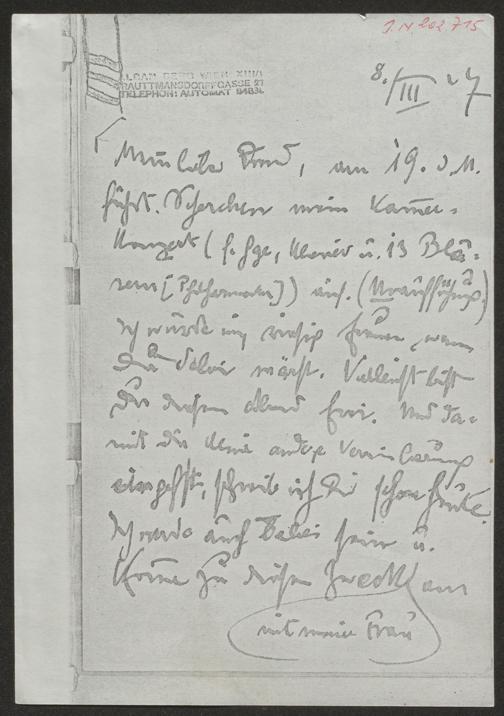 I.N. 202.715
ALBAN BERG WIEN XIII/1
TRAUTTMANSDORFFGASSE 27
TELEPHON: AUTOMAT 84831
8./III 27
Mein lieber Freund, am 19. d. M.
führt Scherchen mein Kammer-
konzert (f. Gge, Klavier u. 13 Blä-
sern [Philharmoniker]) auf. (Uraufführung)
Ich würde mich riesig freuen, wenn
Du dabei wärst. Vielleicht bist
Du diesen Abend frei. Und da-
mit Du keine andere Vereinbarung
eingehst, schreib ich Dir schon heute.
Ich werde auch dabei sein u.
komme zu diesem Zweck an
mit meiner Frau